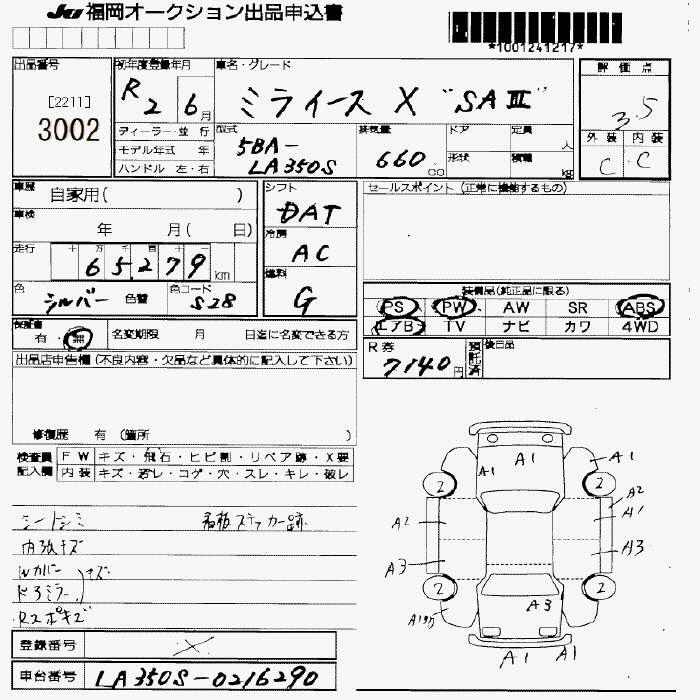 JU 福岡オークション出品申込書
*1001241217*
出品番号
[2211]
3002
初年度登録年月
R2 6月
車名・グレード
ミライース X "SAⅢ"
評価点
3.5
外装 内装
C C
ディーラー・並行
モデル年式 年
ハンドル 左・右
型式
5BA-
LA350S
排気量
660 CC
ドア 定員 人
形状 積載 kg
車歴
自家用( )
車検
年 月( 日)
走行
十 万 千 百 十
65,279 km
色
シルバー 色替
色コード
S28
シフト
DAT
冷房
AC
燃料
G
セールスポイント (正常に機能するもの)
装備品(純正品に限る)
PS PW AW SR ABS
エアB TV ナビ カワ 4WD
R券
7140円
預託済
後日品
保証書
有・無
名変期限 月 日迄に名変できる方
出品店申告欄(不良内容・欠品など具体的に記入して下さい)
修復歴 有 (箇所 )
検査員 FW キズ・飛石・ヒビ割・リペア跡・X要
記入欄 内装 キズ・若レ・コゲ・穴・スレ・キレ・破レ
シートシミ 看板ステッカー跡
内張キズ
Wカバー
ドアミラー キズ
RZポキズ
登録番号
車台番号 LA350S-0216290
A1 A1 A1
2 2
A2
A2 A1
A3 A3
2 2
A3
A1 A1